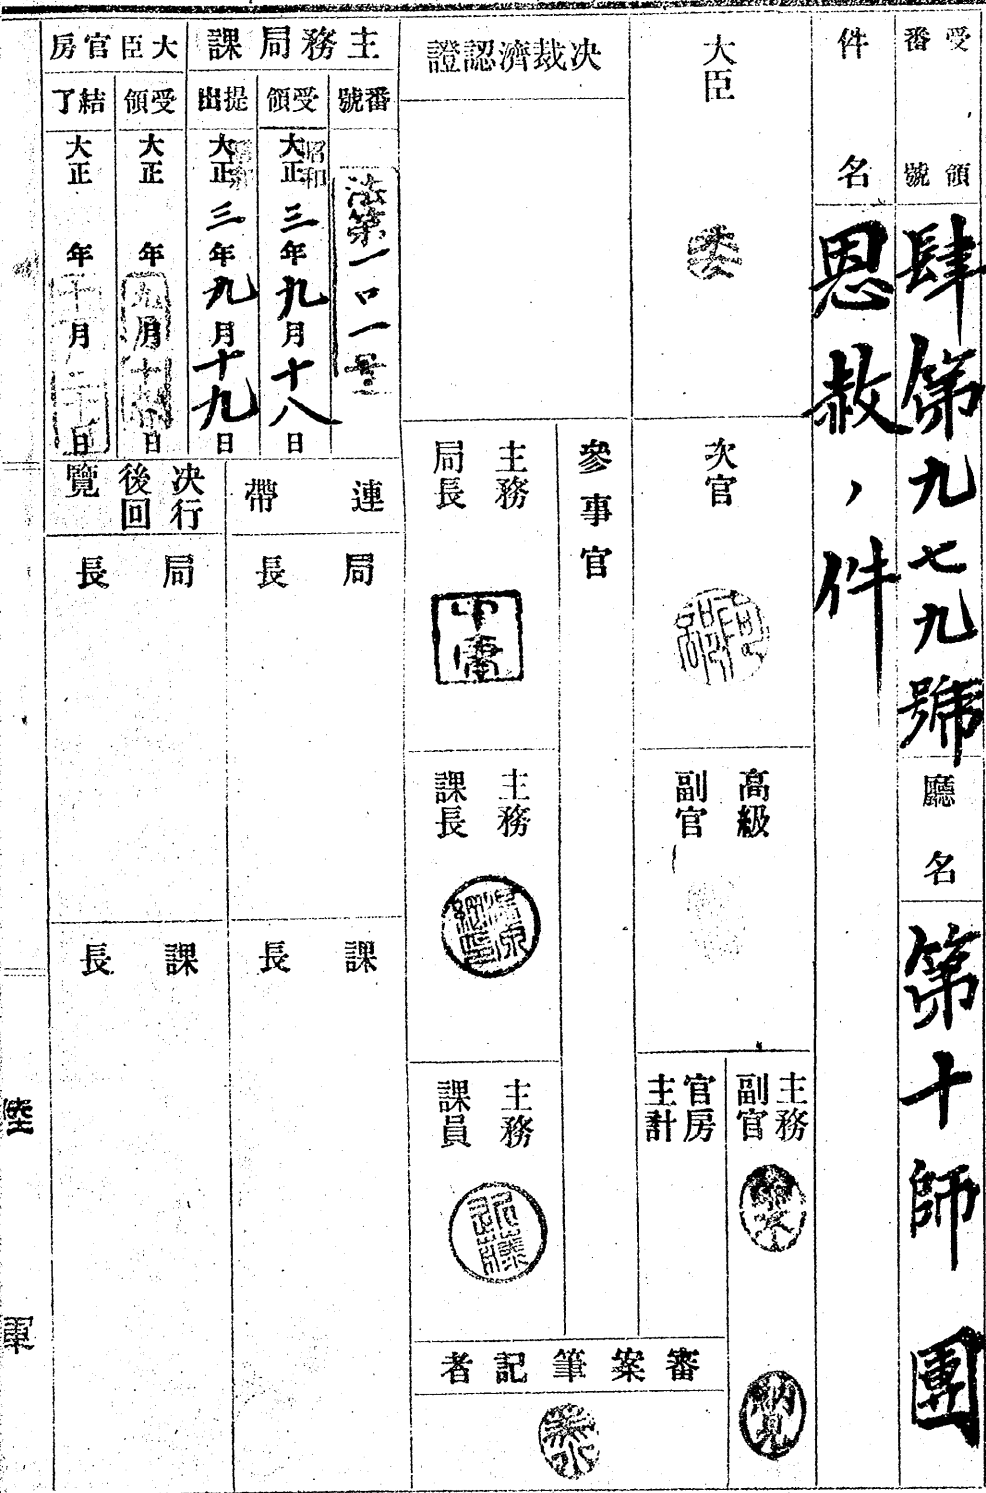 受領番號
肆第九七九號
廳名
第十師團
件名
恩赦ノ件
大臣
委
次官
高級副官
主務副官
納見
官房主計
決裁濟認證
參事官
主務局長
主務課長
主務課員
近藤
審案筆記者
主務局課
番號
法第一〇一号
受領
大正
昭和
三年九月十八日
提出
大正
昭和
三年九月十九日
大臣官房
受領
大正 年 月 日
結了
大正 年 月 日
連帶
局長
課長
決行後回覽
局長
課長
陸軍